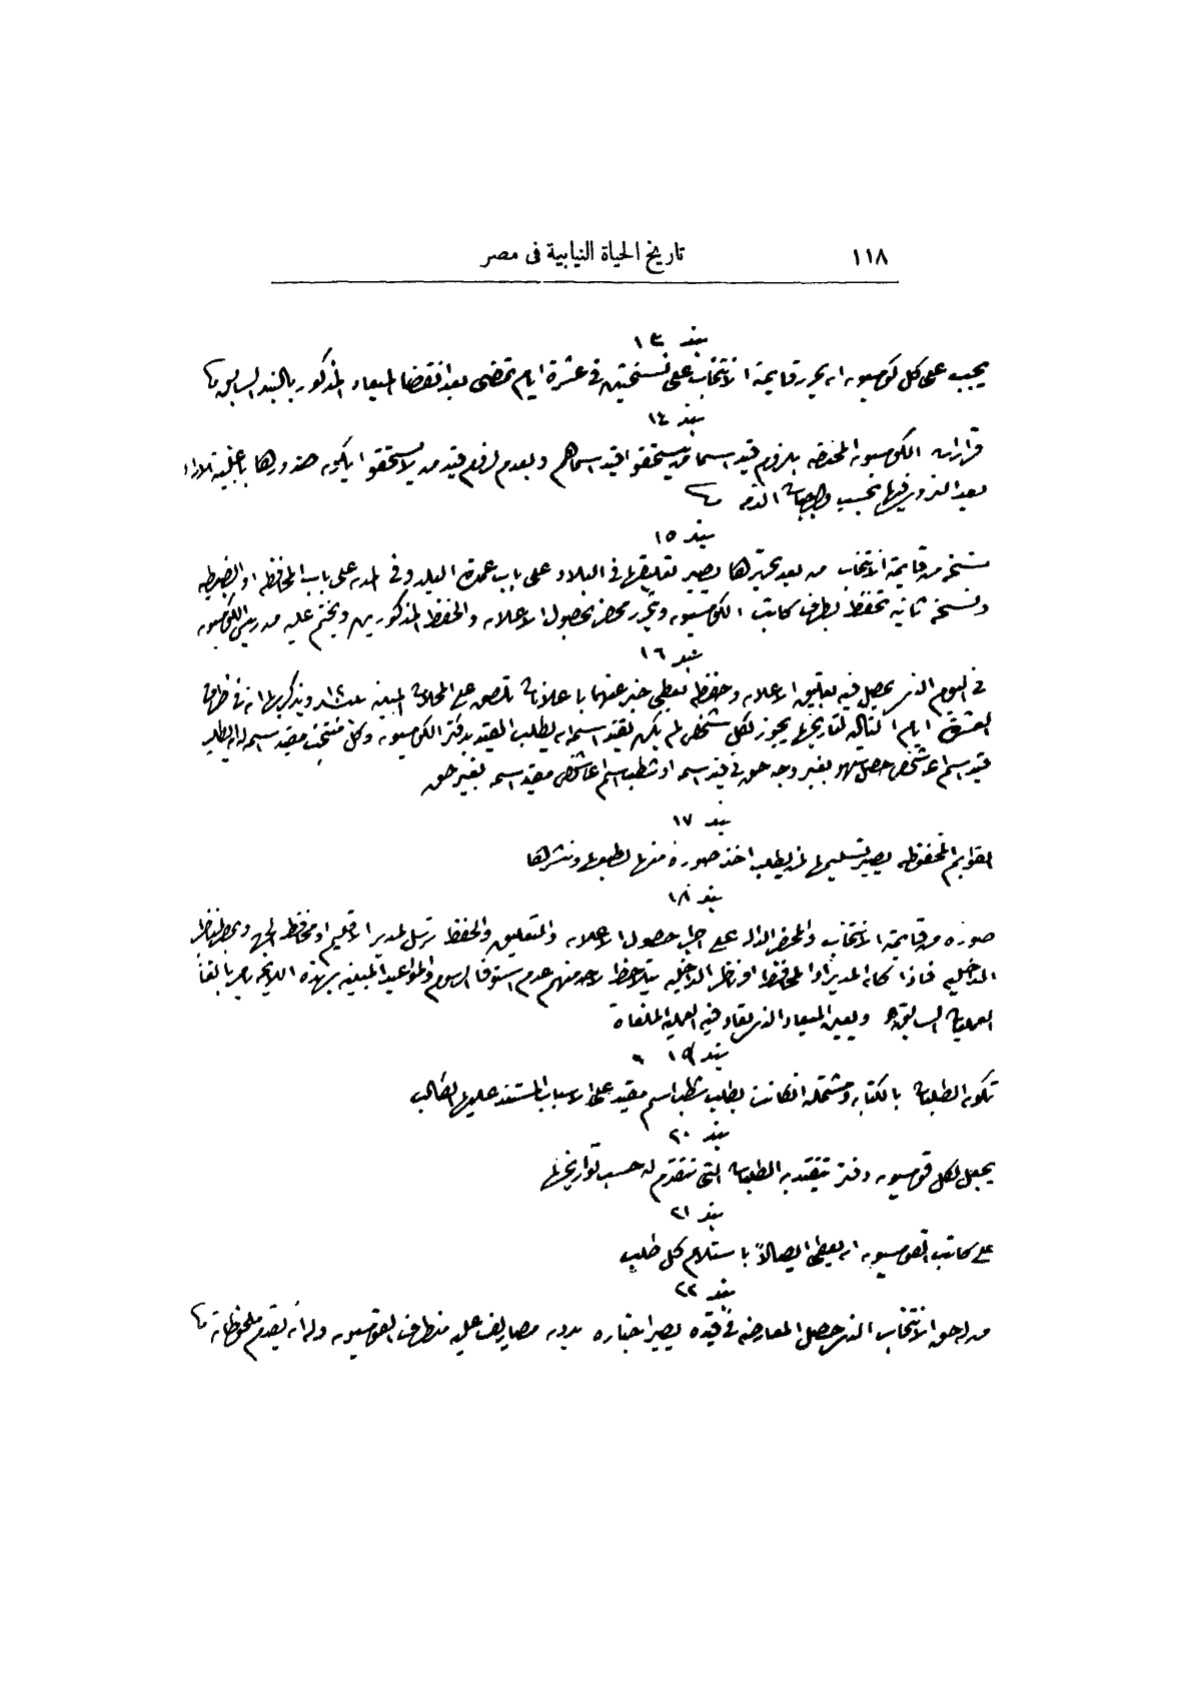 ١١٨ تاريخ الحياة النيابية فى مصر
بند ١٣
يجب على كل كومسيون ان يحرر قايمة الانتخاب على نسختين فى عشرة ايام تمضى بعد انقضا الميعاد المذكور بالبند السابق
بند ١٤
قرارات الكومسيون المختصة بلزوم قيد اسما من يستحقوا قيد اسماهم وبعدم لزوم قيد من لا يستحقوا يكون صدورها باغلبية الاراء
بعد التروى فيها بحسب واجبات الذمة
بند ١٥
نسخة من قايمة الانتخاب من بعد تحريرها يصير تعليقها فى البلاد على باب عمدة البلد وفى المدن على باب المحافظة او الضبطية
ونسخة ثانية تحفظ بطرف كاتب الكومسيون ويتحرر محضر بحصول الاعلان والحفظ المذكورين ويختم عليه من رئيس الكومسيون
بند ١٦
فى اليوم الذى يحصل فيه تعليق الاعلان وحفظه يعطى خبر عنهما باعلانات تلصق على المحلات المبينة ويذكر بها انه فى ظرف
العشرة ايام التالية لتاريخها يجوز لكل شخص لم يكن تقيد اسمه ان يطلب القيد بدفتر الكومسيون وكل منتخب مقيد اسمه له ان يطلب
قيد اسم اى شخص حصل سهو بغير وجه حق فى قيد اسمه او شطب اسم اى شخص مقيد اسمه بغير حق
بند ١٧
القوايم المحفوظة يصير تسليمها لمن يطلب اخذ صورة منها لطبعها ونشرها
بند ١٨
صورة من قايمة الانتخاب والمحضر الدال على حصول الاعلان والتعليق والحفظ ترسل لمدير الاقليم او محافظ الجهة
الداخلية فاذا كان المدير او المحافظ او ناظر الداخلية يتلاحظ لاحد منهم عدم استوفا الرسوم والمواعيد المبينة بهذه اللايحة يامر بالغا
العملية السابقة ويعين الميعاد الذى تعاد فيه العملية الملغاة
بند ١٩
تكون الطلبات بالكتابة ومشتملة ان كانت بطلب شطب اسم مقيد على الاسباب المستند عليها الطالب
بند ٢٠
يجعل لكل قومسيون دفتر تتقيد به الطلبات التى تتقدم له حسب تواريخها
بند ٢١
على كاتب القومسيون ان يعطى ايصالاً باستلام كل طلب
بند ٢٢
من له حق الانتخاب الذى حصل المعارضة فى قيده يصير اخباره بدون مصاريف عليه من طرف القومسيون وله انه يقدم ملحوظاته